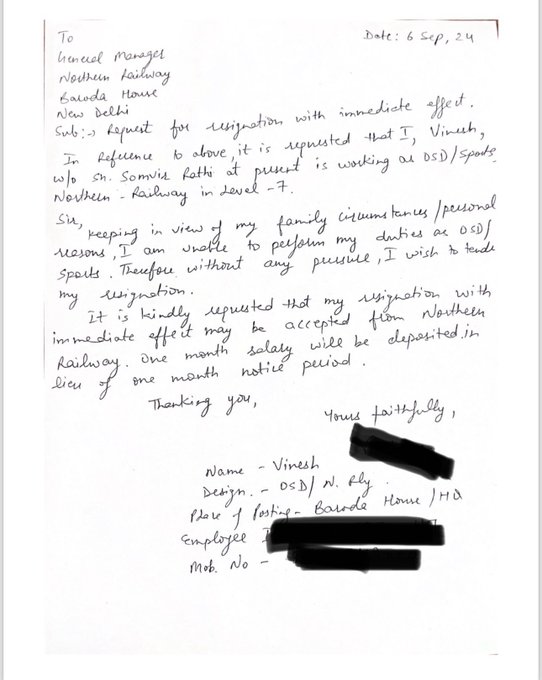 To
Date: 6 Sep, 24
General Manager
Northern Railway
Baroda House
New Delhi
Sub:-> Request for resignation with immediate effect.
In Reference to above, it is requested that I, Vinesh,
w/o Sh. Somvir Rathi at present is working as OSD/Sports,
Northern - Railway in Level -7.
Sir,
keeping in view of my family circumstances/personal
reasons, I am unable to perform my duties as OSD/
Sports. Therefore without any pressure, I wish to tende
my resignation.
It is kindly requested that my resignation with
immediate effect may be accepted from Northern
Railway. One month salary will be deposited in
lieu of one month notice period.
Thanking you,
Yours faithfully,
Name - Vinesh
Design. - OSD/ N. Rly.
Place of Posting - Baroda House /HQ
Employee
Mob. No -